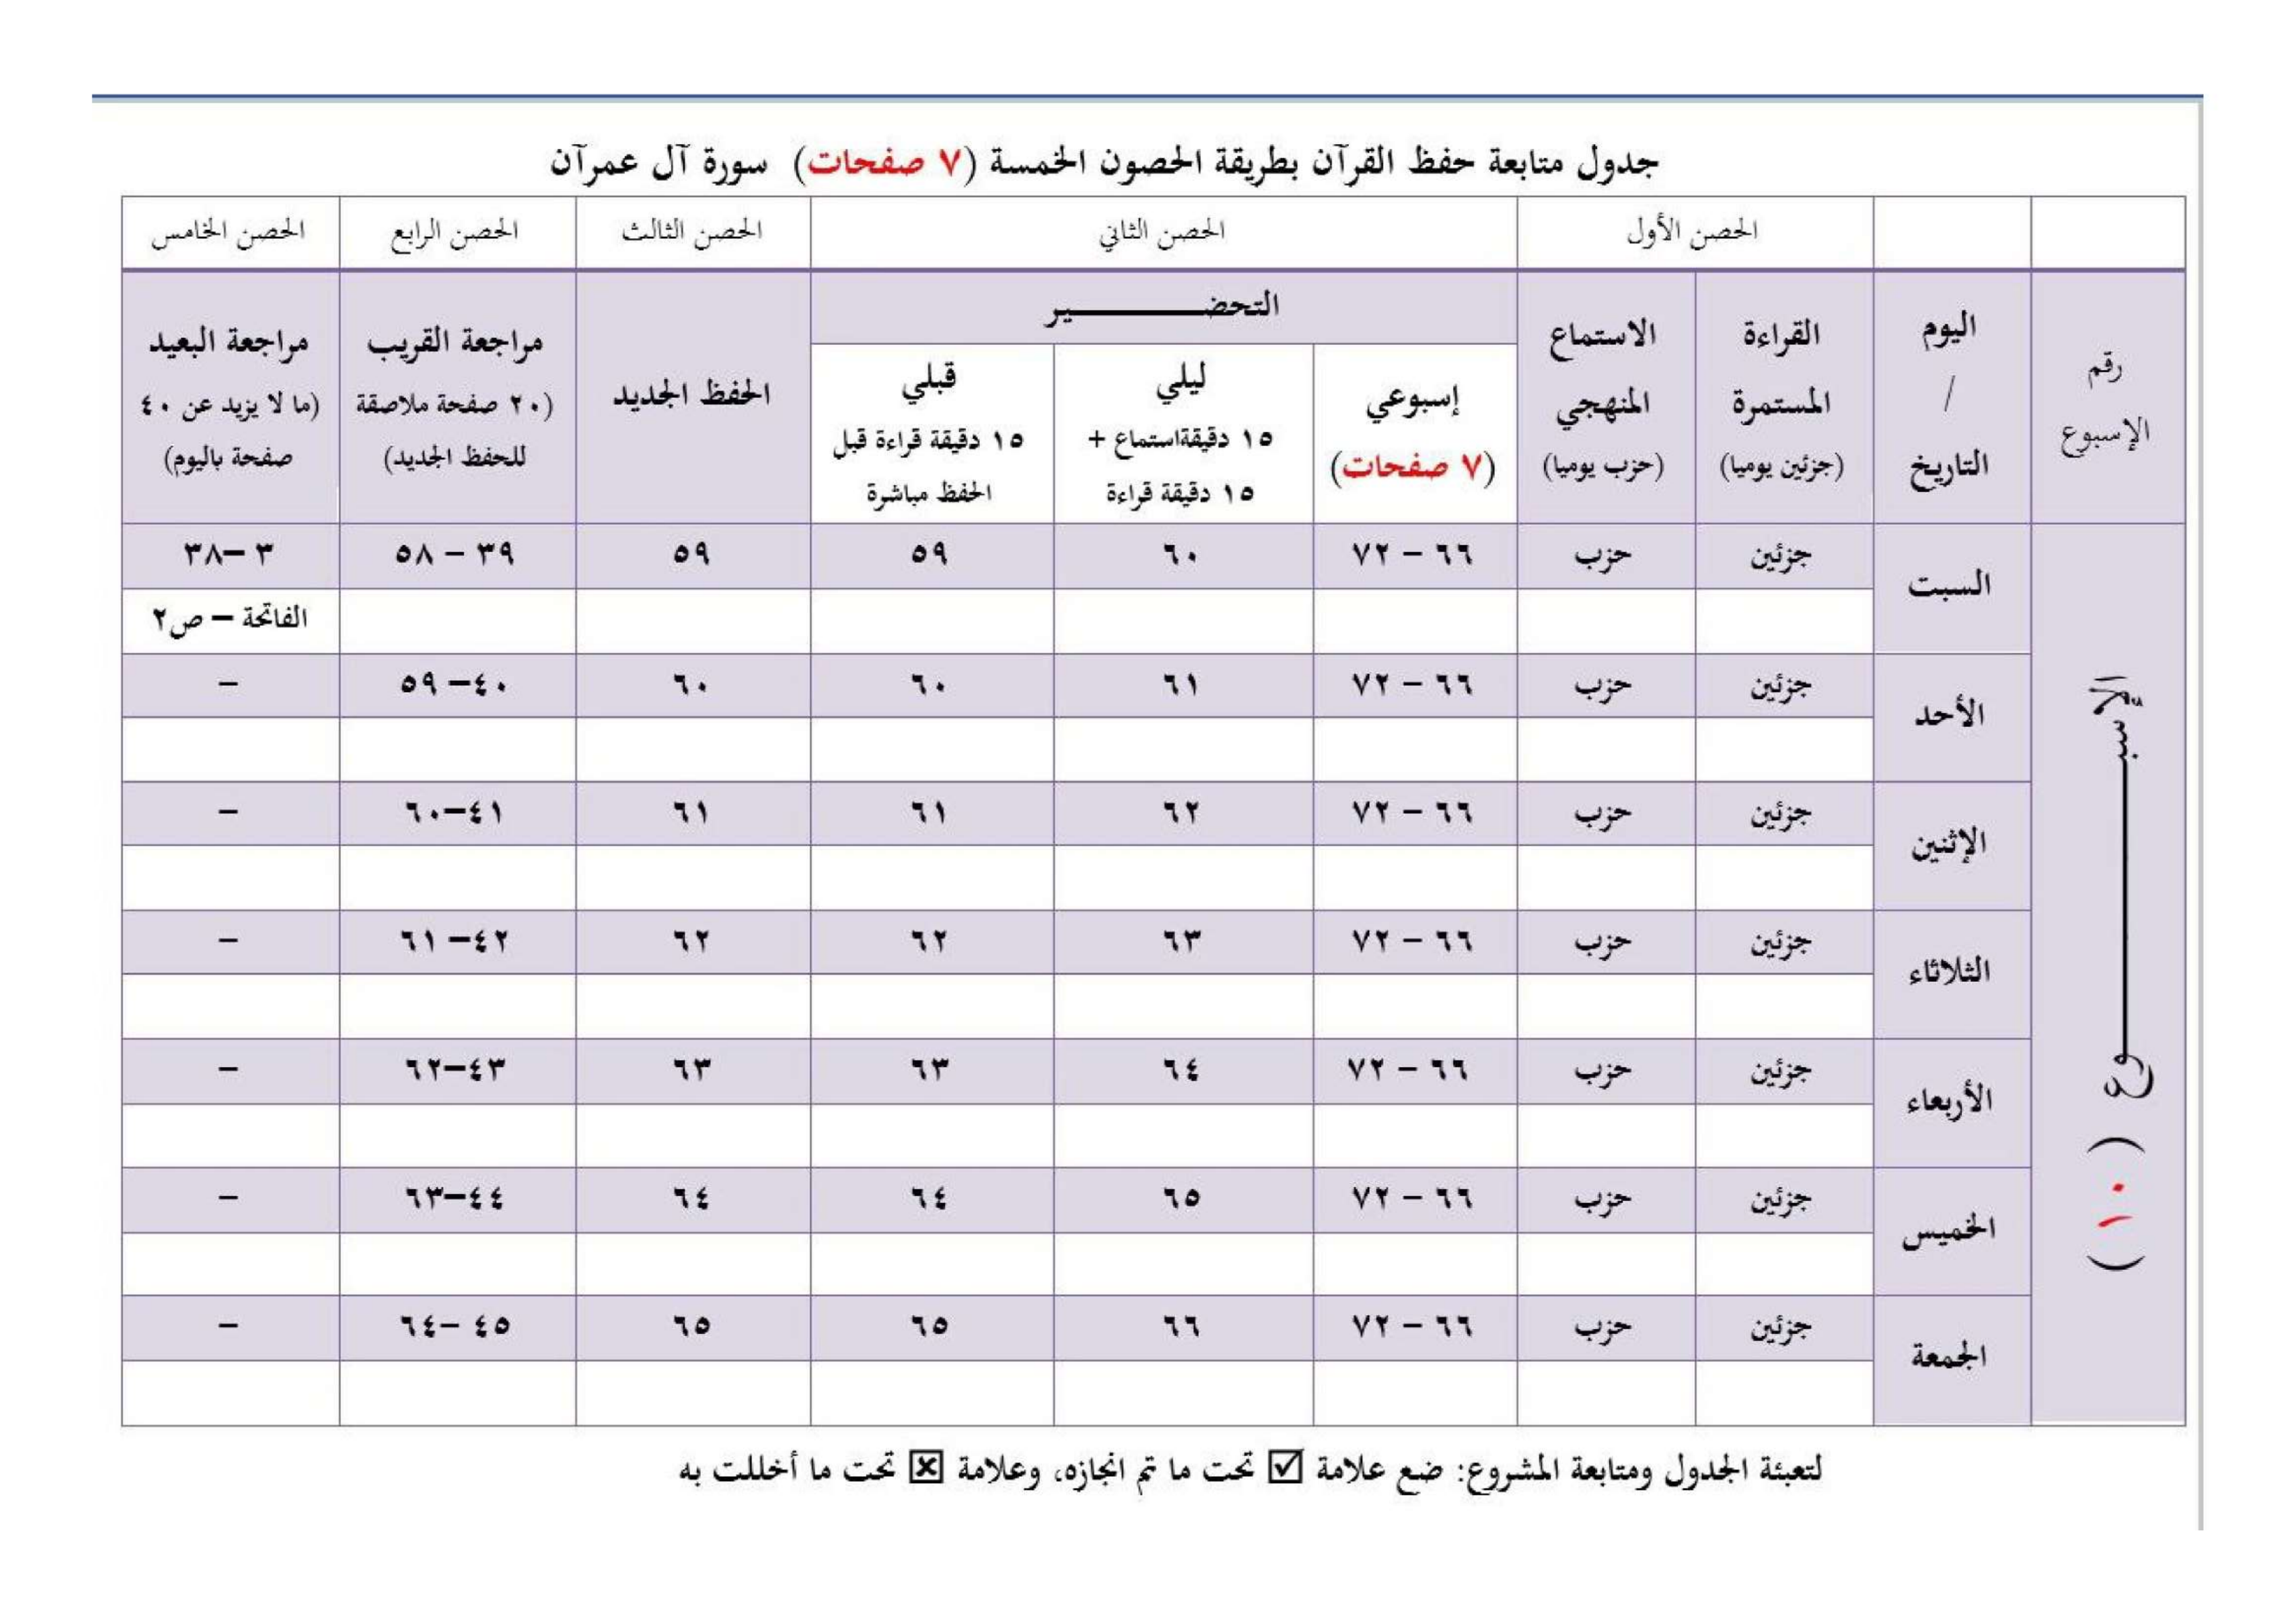 جدول متابعة حفظ القرآن بطريقة الحصون الخمسة (٧ صفحات) سورة آل عمرآن
الحصن الأول الحصن الثاني الحصن الثالث الحصن الرابع الحصن الخامس
رقم الإسبوع
اليوم / التاريخ
القراءة المستمرة (جزئين يوميا)
الاستماع المنهجي (حزب يوميا)
التحضـــــــــير
إسبوعي (٧ صفحات)
ليلي ١٥ دقيقةاستماع + ١٥ دقيقة قراءة
قبلي ١٥ دقيقة قراءة قبل الحفظ مباشرة
الحفظ الجديد
مراجعة القريب (٢٠ صفحة ملاصقة للحفظ الجديد)
مراجعة البعيد (ما لا يزيد عن ٤٠ صفحة باليوم)
الإسبـــــــوع (١٠)
السبت جزئين حزب ٦٦ – ٧٢ ٦٠ ٥٩ ٥٩ ٣٩ – ٥٨ ٣ –٣٨
الفاتحة – ص٢
الأحد جزئين حزب ٦٦ – ٧٢ ٦١ ٦٠ ٦٠ ٤٠– ٥٩ –
الإثنين جزئين حزب ٦٦ – ٧٢ ٦٢ ٦١ ٦١ ٤١–٦٠ –
الثلاثاء جزئين حزب ٦٦ – ٧٢ ٦٣ ٦٢ ٦٢ ٤٢– ٦١ –
الأربعاء جزئين حزب ٦٦ – ٧٢ ٦٤ ٦٣ ٦٣ ٤٣–٦٢ –
الخميس جزئين حزب ٦٦ – ٧٢ ٦٥ ٦٤ ٦٤ ٤٤–٦٣ –
الجمعة جزئين حزب ٦٦ – ٧٢ ٦٦ ٦٥ ٦٥ ٤٥ –٦٤ –
لتعبئة الجدول ومتابعة المشروع: ضع علامة ☑ تحت ما تم انجازه، وعلامة ☒ تحت ما أخللت به